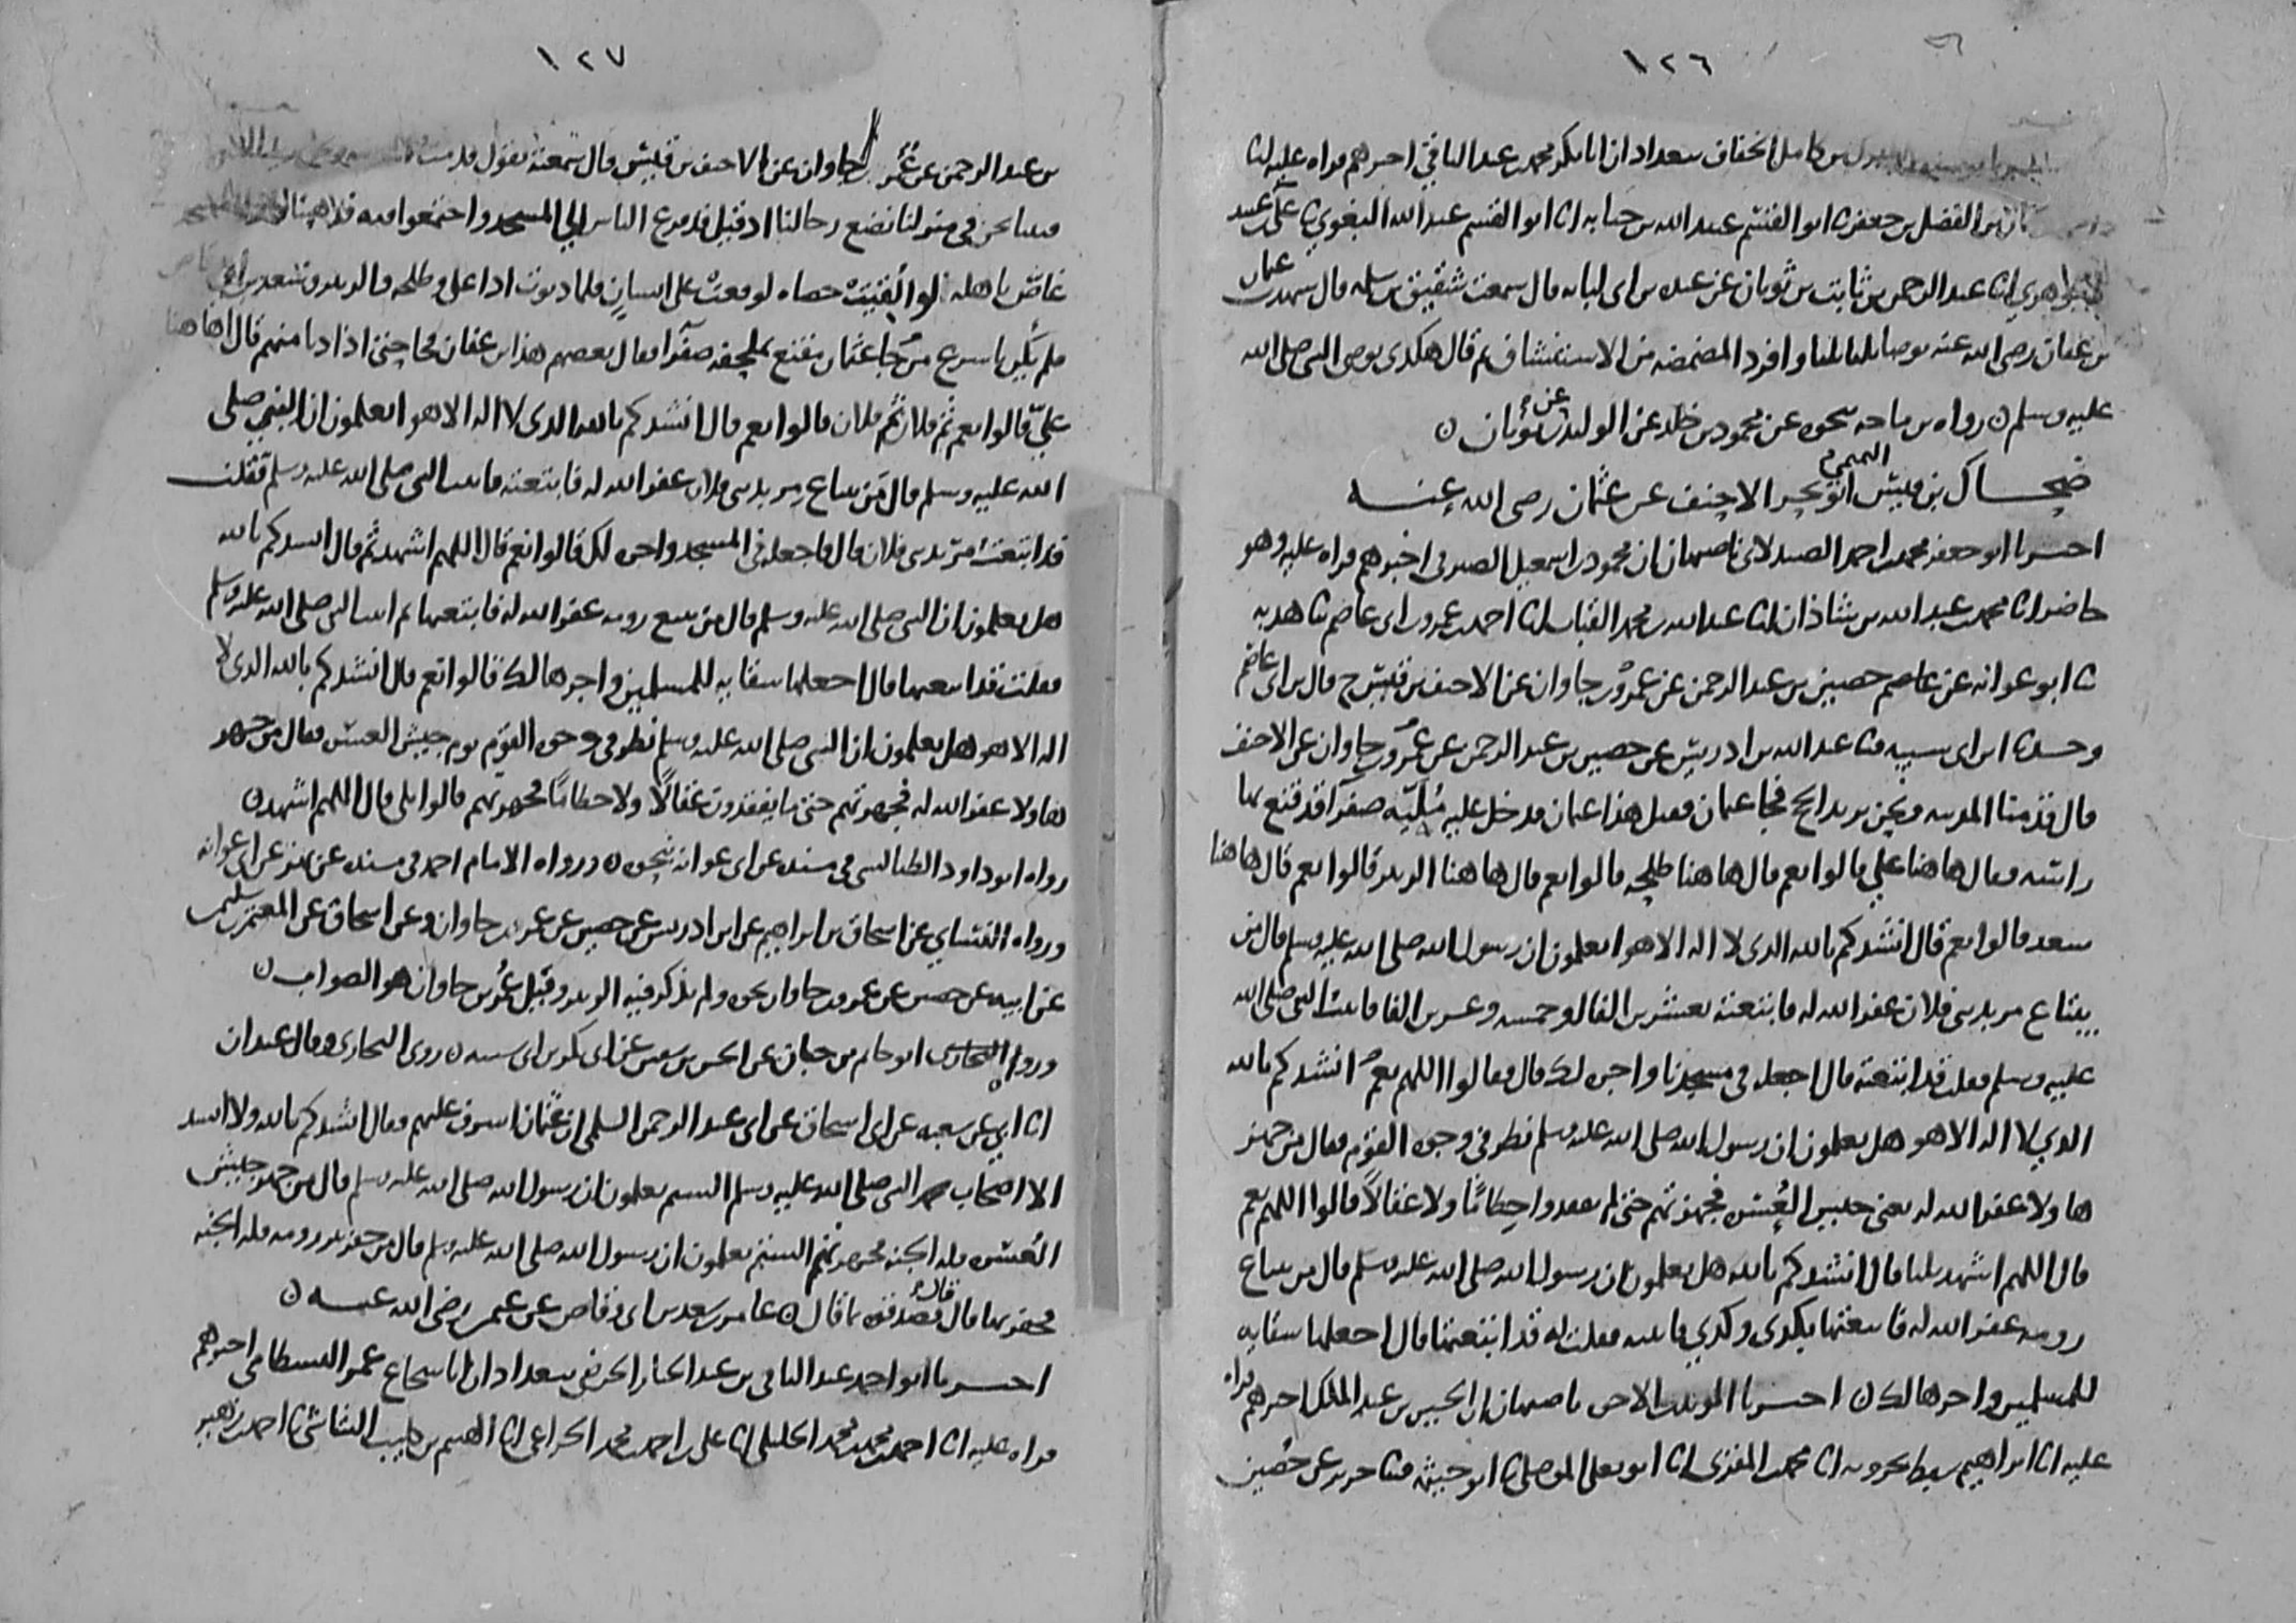 ١٢٦
بن كامل الخفاف ببغداد ان ابا بكر محمد بن عبد الباقي اخبرهم قراه عليه انا
بن الفضل بن جعفر نا ابو القسم عبيد الله بن حبابه انا ابو القسم عبد الله البغوي نا علي
الجوهري انا عبد الرحمن بن ثابت بن ثوبان عن عبده بن ابي لبابه قال سمعت شقيق بن سلمه قال شهدت عثمان
بن عفان رضي الله عنه توضا ثلثا ثلثا وافرد المضمضه من الاستنشاق ثم قال هكذي توضا النبي صلى الله
عليه وسلم ن رواه بن ماجه بنحوه عن محمود بن خلد عن الوليد عن بن ثوبان ن
ضحاك بن قيس التميمي ابو بحر الاحنف عن عثمان رضي الله عنه
اخبرنا ابو جعفر محمد بن احمد الصيدلاني باصبهان ان محمود بن اسمعيل الصيرفي اخبرهم قراه عليه وهو
حاضر انا محمد بن عبد الله بن شاذان انا عبد الله بن محمد القباب انا احمد بن عمرو بن ابي عاصم نا هدبه
نا ابو عوانه عن عاصم حصين بن عبد الرحمن عن عمرو بن جاوان عن الاحنف بن قيس ح قال بن ابي عاصم
وحدثنا ابن ابي شيبه نا عبد الله بن ادريس عن حصين بن عبد الرحمن عن عمرو بن جاوان عن الاحنف
قال قدمنا المدينه ونحن نريد الحج فجا عثمان فقيل هذا عثمان فدخل عليه مليه صفرا قد قنع بها
راسه فقال هاهنا علي قالوا نعم قال هاهنا طلحه قالوا نعم قال هاهنا الزبير قالوا نعم قال هاهنا
سعد قالوا نعم قال انشدكم بالله الذي لا اله الا هو اتعلمون ان رسول الله صلى الله عليه وسلم قال من
يبتاع مربد بني فلان غفر الله له فابتعته بعشرين الفا او خمسه وعشرين الفا فاتيت النبي صلى الله
عليه وسلم فقلت قد ابتعته قال اجعله في مسجدنا واجره لك قال فقالوا اللهم نعم انشدكم بالله
الذي لا اله الا هو هل تعلمون ان رسول الله صلى الله عليه وسلم نظر في وجوه القوم فقال من جهز
هاولا غفر الله له يعني جيش العسره فجهزتهم حتى لم يفقدوا خطاما ولا عقالا قالوا اللهم نعم
قال اللهم اشهد ثلثا قال انشدكم بالله هل تعلمون ان رسول الله صلى الله عليه وسلم قال من يبتاع
رومه غفر الله له فابتعتها بكذي وكذي فاتيته فقلت له قد ابتعتها قال اجعلها سقايه
للمسلمين واجرها لك ن اخبرنا المويد بن الاخوه باصبهان ان الحسين بن عبد الملك اخبرهم قراه
عليه انا ابراهيم سبط بحرويه انا محمد بن المقري انا ابو يعلى الموصلي نا ابو خيثمه نا جرير عن حصين
١٢٧
بن عبد الرحمن عن عمر بن جاوان عن الاحنف بن قيس قال سمعته يقول قدمت
فبينا نحن في منزلنا نضع رحالنا اذ قيل قد فزع الناس الى المسجد واجتمعوا فيه
غاص باهله لو القيت حصاه لوقعت على انسان فلما دنوت اذا علي وطلحه والزبير وسعد بن ابي
فلم يكن باسرع من جا عثمان متقنع بملحفه صفرا فقال بعضهم هذا بن عفان فجا حتى اذا دنا منهم قال اهاهنا
علي قالوا نعم ثم فلان ثم فلان قالوا نعم قال انشدكم بالله الذي لا اله الا هو اتعلمون ان النبي صلى
الله عليه وسلم قال من يبتاع مربد بني فلان غفر الله له فابتعته فاتيت النبي صلى الله عليه وسلم فقلت
قد ابتعت مربد بني فلان قال فاجعله في المسجد واجره لك قالوا نعم قال اللهم اشهد ثم قال انشدكم بالله
هل تعلمون ان النبي صلى الله عليه وسلم قال من يبتع رومه غفر الله له فابتعتها ثم اتيت النبي صلى الله عليه وسلم
فقلت قد ابتعتها قال اجعلها سقايه للمسلمين واجرها لك قالوا نعم قال انشدكم بالله الذي لا
اله الا هو هل تعلمون ان النبي صلى الله عليه وسلم نظر في وجوه القوم يوم جيش العسره فقال من جهز
هاولا غفر الله له فجهزتهم حتى ما يفقدون عقالا ولا خطاما فجهزتهم قالوا بلى قال اللهم اشهد ن
رواه ابو داود الطيالسي في مسنده عن ابي عوانه بنحوه ن ورواه الامام احمد في مسنده عن بهز عن ابي عوانه
ورواه النسائي عن اسحاق بن ابراهيم عن ابن ادريس عن حصين عن عمرو بن جاوان وعن اسحاق عن المعتمر بن سليمن
عن ابيه عن حصين عن عمرو بن جاوان بنحوه ولم يذكر فيه الزبير وقيل عمر بن جاوان هو الصواب ن
ورواه ابو حاتم بن حبان عن الحسن بن سفين عن ابي بكر بن ابي شيبه ن روى البخاري وقال عبدان
انا ابي عن شعبه عن ابي اسحاق عن ابي عبد الرحمن السلمي ان عثمان اشرف عليهم فقال انشدكم بالله ولا انشد
الا اصحاب محمد النبي صلى الله عليه وسلم الستم تعلمون ان رسول الله صلى الله عليه وسلم قال من جهز جيش
العسره فله الجنه فجهزتهم الستم تعلمون ان رسول الله صلى الله عليه وسلم قال من حفر بير رومه فله الجنه
فحفرتها قال فصدقوه بما قال ن عامر بن سعد بن ابي وقاص عن عمر رضي الله عنه ن
اخبرنا ابو احمد عبد الباقي بن عبد الجبار الحرضي ببغداد ان ابا شجاع عمر البسطامي اخبرهم
قراه عليه انا احمد بن محمد بن محمد الخليلي انا علي بن احمد بن محمد الخزاعي انا الهيثم بن كليب الشاشي نا احمد بن زهير